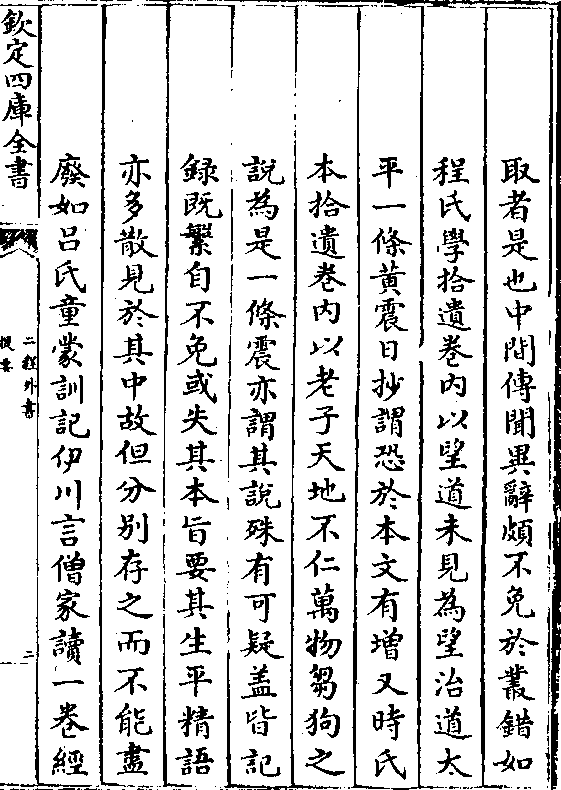 取者是也中間傳聞異辭頗不免於叢錯如
程氏學拾遺卷内以望道未見為望治道太
平一條黄震日抄謂恐於本文有增又時氏
本拾遺卷内以老子天地不仁萬物芻狗之
說為是一條震亦謂其說殊有可疑蓋皆記
録既繁自不免或失其本旨要其生平精語
亦多散見於其中故但分别存之而不能盡
廢如吕氏童蒙訓記伊川言僧家讀一卷經
欽定四庫全書
二程外書
提要
二